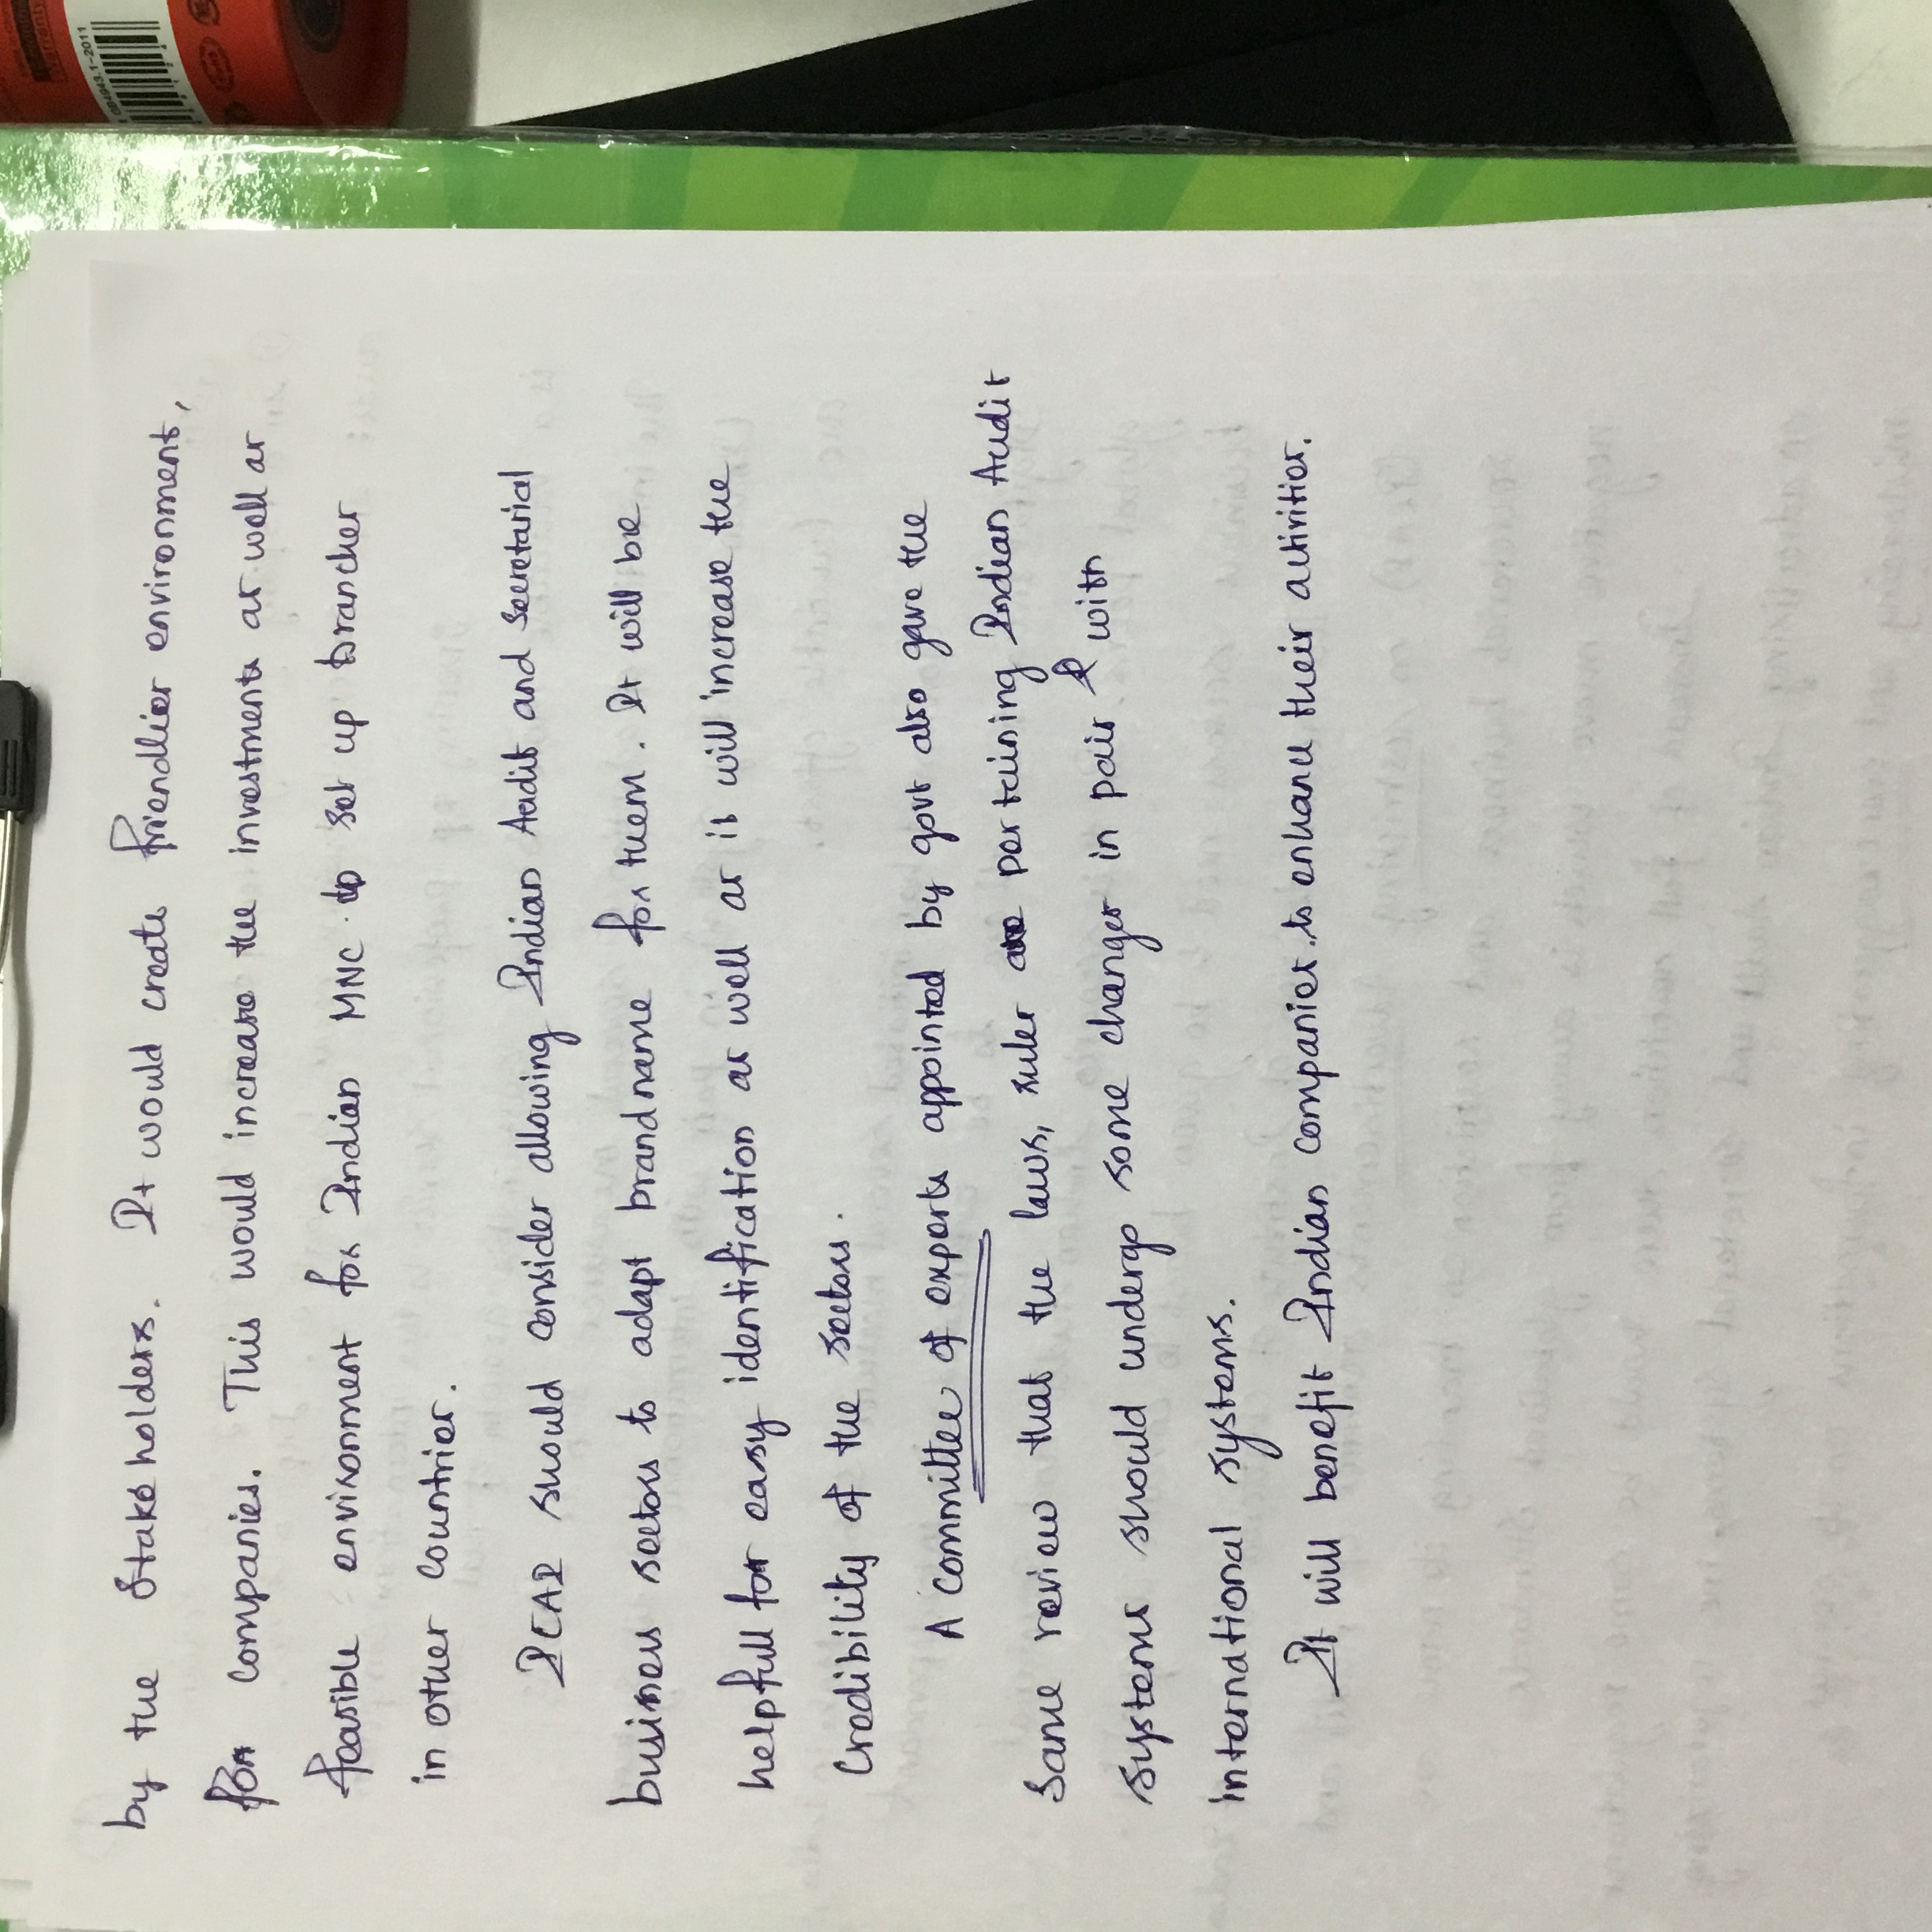 by the Stakeholders. It would create friendlier environment,
for companies. This would increase the investments as well as
feasible environment for Indian MNC to set up branches
in other countries.
ICAI should consider allowing Indian Audit and secretarial
business sectors to adapt brand name for them. It will be
helpfull for easy identification as well as it will increase the
Credibility of the sectors.
A committee of experts appointed by govt also gave the
Same review that the laws, rules are pertaining Indian Audit
Systems should undergo some changes in pair with
international systems.
It will benefit Indian companies to enhance their activities.
GB4943.1-2011